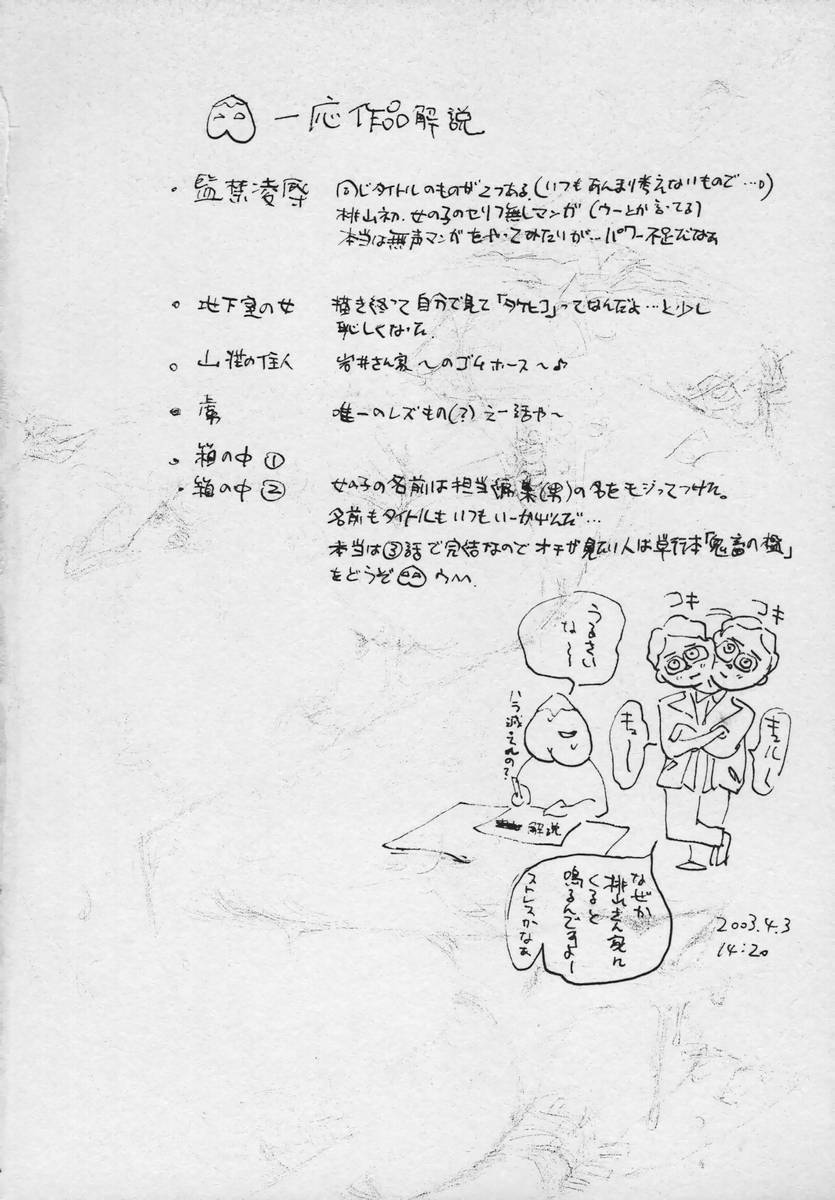 一応作品解説
・監禁凌辱 同じタイトルのものが2つある。(いつもあんまり考えないもので…。)
桃山初、女の子のセリフ無しマンガ(ウーとか言ってる)
本当は無声マンガをやってみたいが…パワー不足だなぁ
・地下室の女 描き終って自分で見て「タケヒコ」ってなんだよ…と少し
恥しくなった。
・山荘の住人 岩井さん家〜のゴムホース〜♪
・ 唯一のレズもの(?)えー話や〜
・箱の中①
・箱の中② 女の子の名前は担当編集(男)の名をモジってつけた。
名前もタイトルもいつもいーかげんだ…
本当は③話で完結なのでオチが見たい人は単行本「鬼畜の檻」
をどうぞ
うるさい
な〜〜
ハラ減ってんの?
解説
コキ
コキ
キュー
キュルルー
なぜか
桃山さん家に
くると
鳴るんですよー
ストレスかなぁ
2003.4.3
14:20